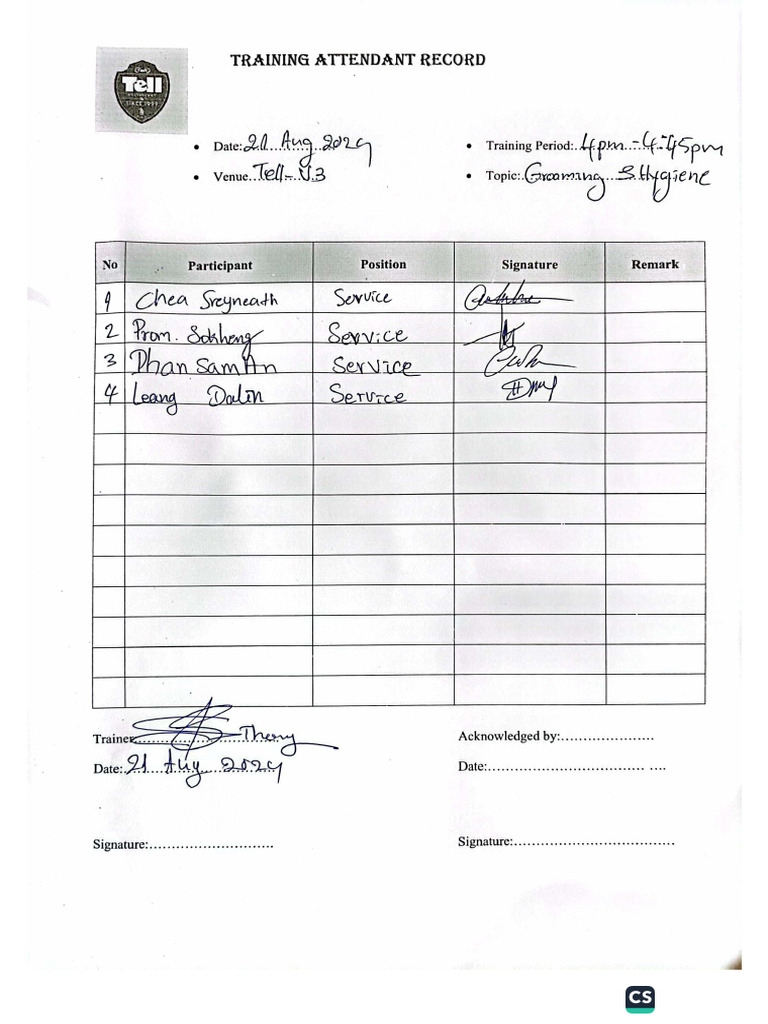 TRAINING ATTENDANT RECORD
Tell
SINCE 1999
• Date: 21 Aug 2024
• Training Period: 4pm - 4:45pm
• Venue Tell - V3
• Topic: Grooming & Hygiene
No Participant Position Signature Remark
1 Chea Sreyneath Service
2 Prom. Sokheng Service
3 Phan SamAn Service
4 Leang Dalin Service
Trainer: Theny
Acknowledged by:
Date: 21 Aug 2024
Date:
Signature:
Signature:
CS